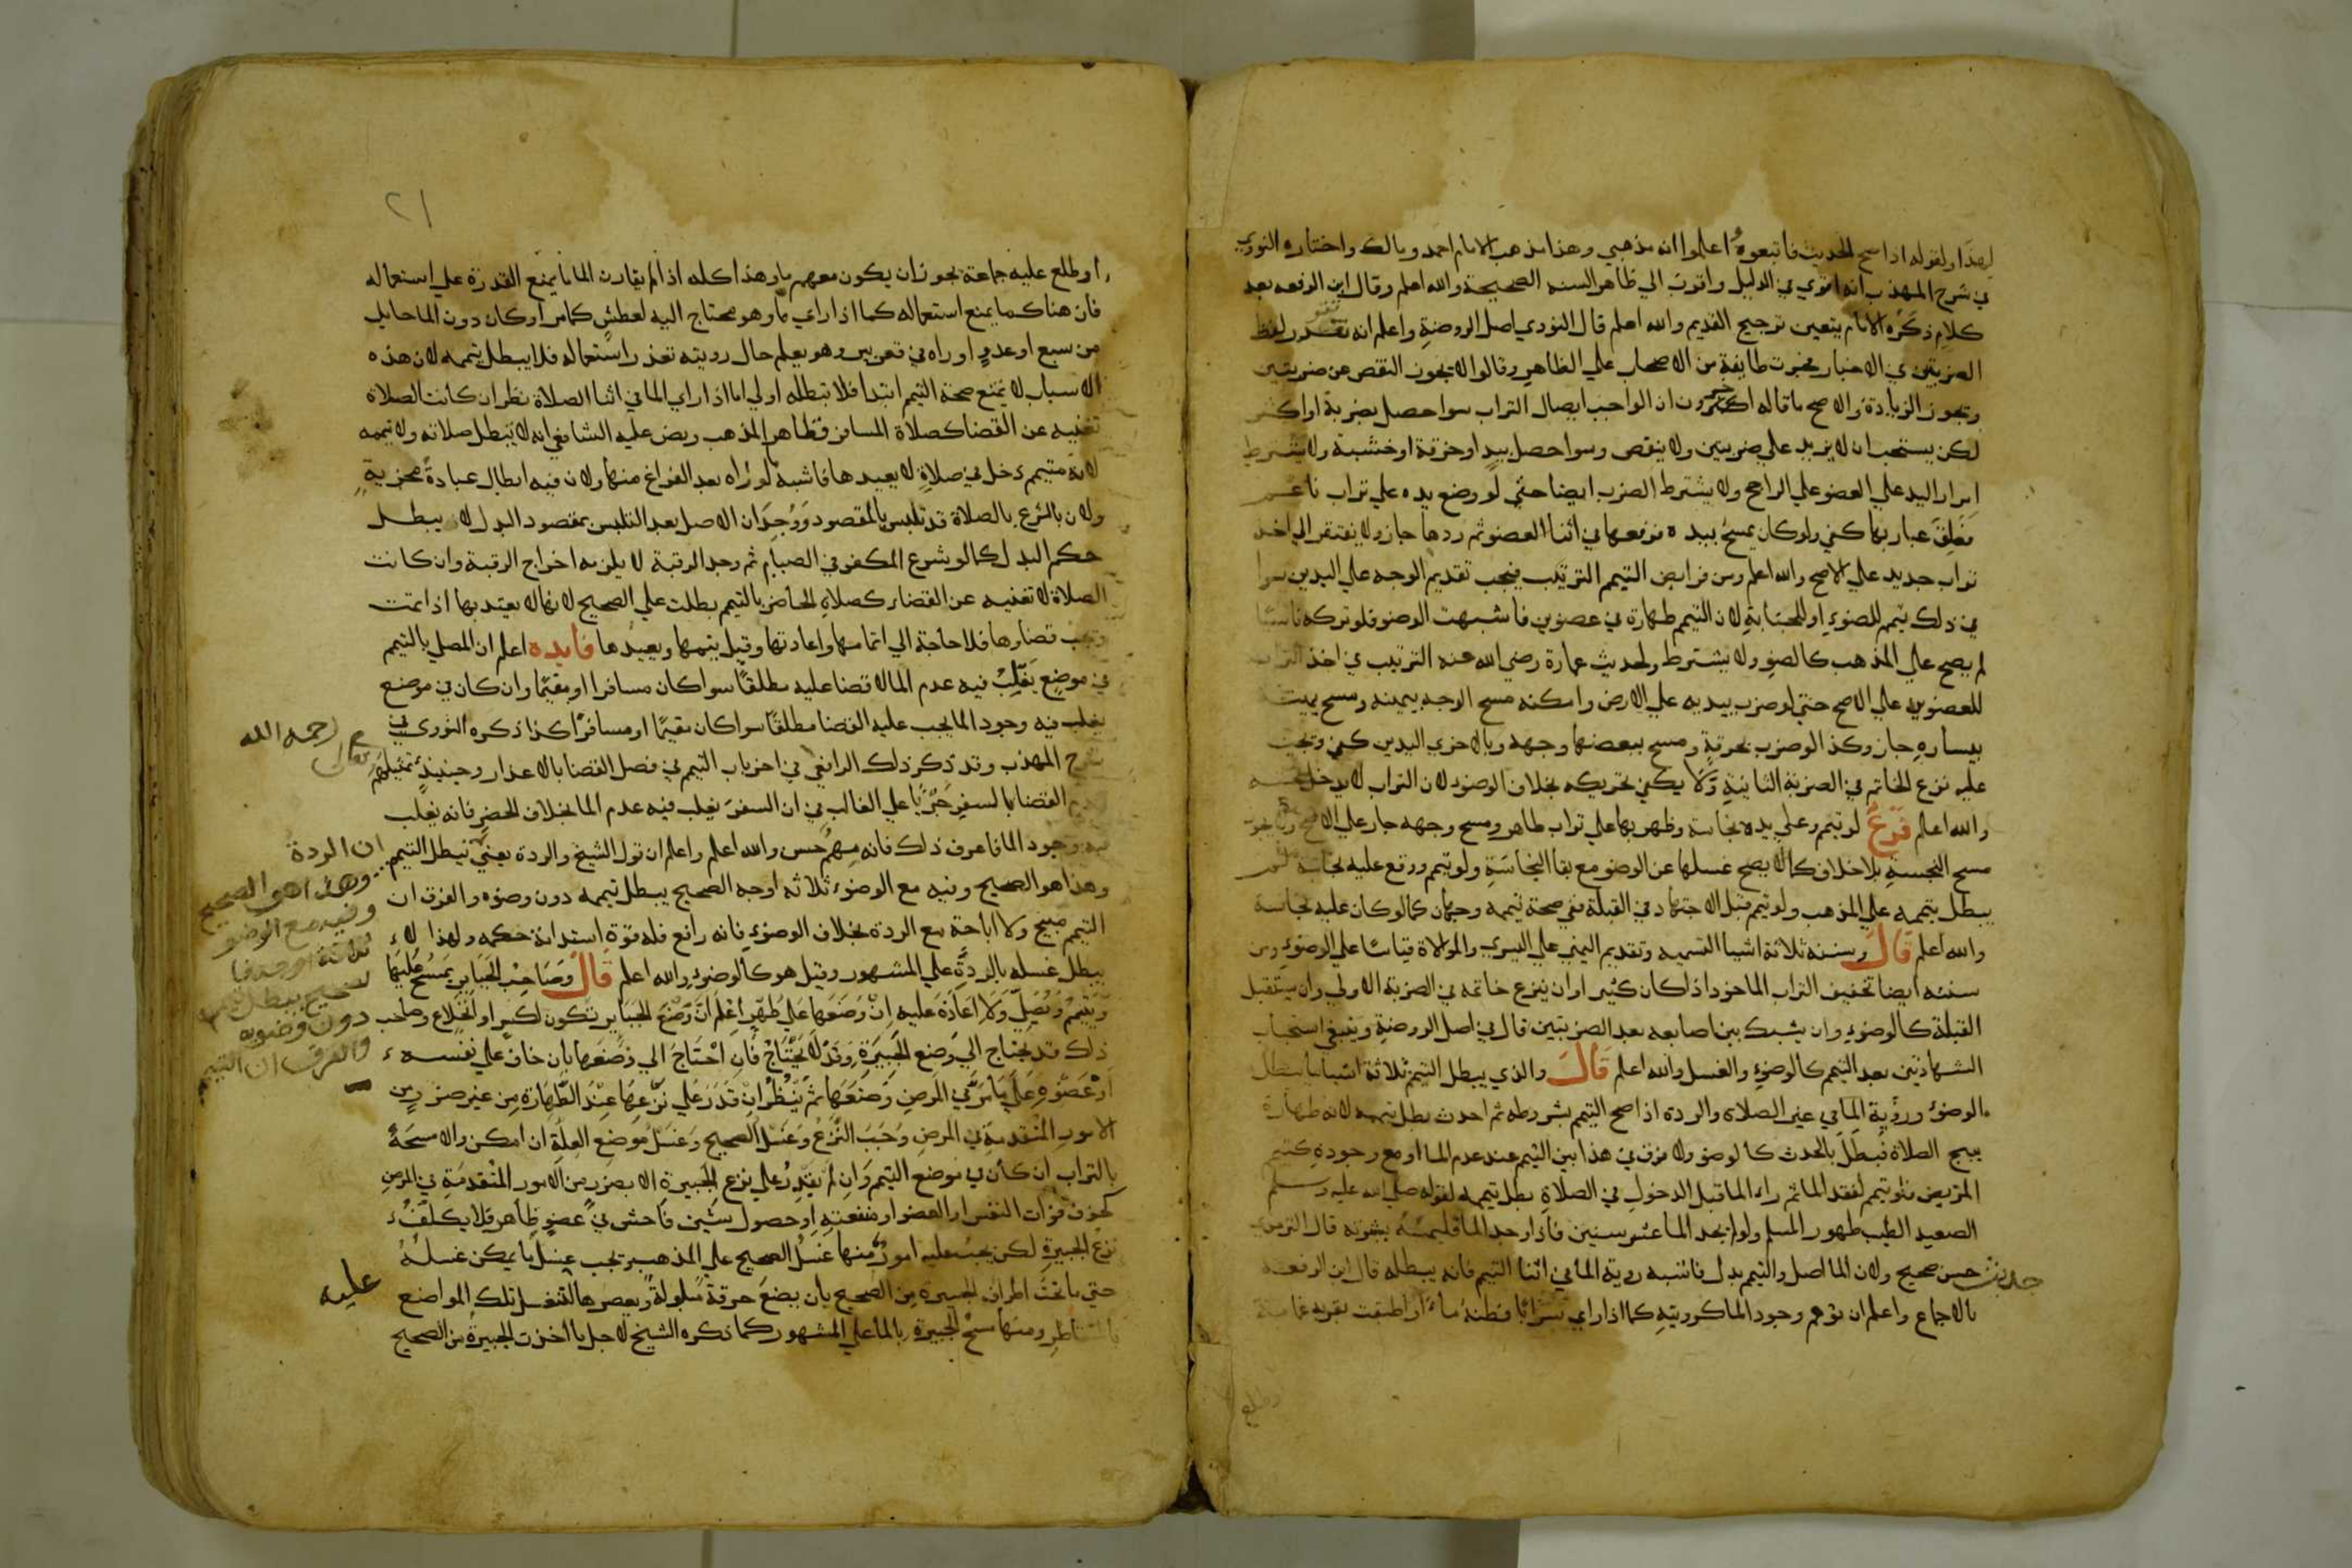 لهذا ولقوله اذا صح الحديث فاتبعوه اعلموا انه مذهبي وهذا مذهب الامام احمد ومالك واختاره النووي
في شرح المهذب انه اقوي في الدليل واقرب الي ظاهر السنه الصحيحة والله اعلم وقال ابن الرفعه بعد
كلام ذكره الامام يتعين ترجيح القديم والله اعلم قال النووي اصل الروضة واعلم انه تقرر لفظ
الضربتين في الاخبار فجرت طايفة من الاصحاب علي الظاهر وقالوا لا يجوز النقص من ضربتين
وتجوز الزيادة والاصح ما قاله اخرون ان الواجب ايصال التراب سوا حصل بضربة او اكثر
لكن يستحب ان لا يزيد علي ضربتين ولا ينقص وسوا حصل بيد او خرقة او خشبة ولا يشترط
امرار اليد علي العضو علي الراجح ولا يشترط الضرب ايضا حتي لو وضع يده علي تراب ناعم
فعلق غبار بها كفي ولو كان يمسح بيده فرفعها في اثنا العضو ثم ردها جاز ولا يفتقر الي اخذ
تراب جديد علي الاصح والله اعلم ومن فرايض التيمم الترتيب فيجب تقديم الوجه علي اليدين سوا
في ذلك تيمم للضوء او للجنابة لان التيمم طهارة في عضوين فاشبهت الوضو فلو تركه ناسيا
لم يصح علي المذهب كالضو ولا يشترط ولحديث عمارة رضي الله عنه الترتيب في اخذ التراب
للعضوين علي الاصح حتي لو ضرب بيديه علي الارض وامكنه مسح الوجه بيمينه ومسح يمينه
بيساره جاز وكذا لو ضرب بخرقة ومسح ببعضها وجهه وبالاخري اليدين كفي ويجب
عليه نزع الخاتم في الضربة الثانية ولا يكفي تحريكه بخلاف الوضو لان التراب لا يدخل تحته
والله اعلم فرع لو تيمم وعلي يده نجاسة وظهر بها علي تراب طاهر ومسح وجهه جاز علي الاصح
مسح النجسة بلا خلاف كما لا يصح غسلها عن الوضو مع بقا النجاسة ولو تيمم ووقع عليه نجاسة
يبطل تيممه علي المذهب ولو تيمم قبل الاجتهاد في القبلة ففي صحة تيممه وجهان كما لو كان عليه نجاسة
والله اعلم قال وسننه ثلاثة اشيا التسميه وتقديم اليمني علي اليسري والموالاة قياسا علي الوضوء ومن
سننه ايضا تخفيف التراب الماخوذ اذا كان كثيرا وان ينزع خاتمه في الضربة الاولي وان يستقبل
القبلة كالوضوء وان يشبك بين اصابعه بعد الضربتين قال في اصل الروضة وينبغي استحباب
الشهادتين بعد التيمم كالوضوء والغسل والله اعلم قال والذي يبطل التيمم ثلاثة اشيا ما يبطل
الوضوء ورؤية الما في غير الصلاة والردة اذا صح التيمم بشروطه ثم احدث بطل تيممه لانه طهارة
يبيح الصلاة فيبطل بالحدث كالوضو ولا فرق في هذا بين التيمم عند عدم الما او مع وجوده كتيمم
المريض فلو تيمم لفقد الما ثم راء الما قبل الدخول في الصلاة بطل تيممه لقوله صلي الله عليه وسلم
الصعيد الطيب طهور المسلم ولو لم يجد الما عشر سنين فاذا وجد الما فليمسه بشرته قال الترمذي
حديث حسن صحيح ولان الما اصل والتيمم بدل فاشبه روية الما في اثنا التيمم فانه يبطله قال ابن الرفعة
بالاجماع واعلم ان توهم وجود الما كرويته كما اذا راي سرابا فظنه ماء او اطبقت بقربه غمامة
٢١
او طلع عليه جماعة يجوز ان يكون معهم ما وهذا كله اذا لم يقارن الما ما يمنع القدرة علي استعماله
فان هناك ما يمنع استعماله كما اذا راي ما وهو محتاج اليه لعطش كما مر او كان دون الما حايل
من سبع او عدو او راه في قعر بير وهو يعلم حال رويته تعذر استعماله فلا يبطل تيممه لان هذه
الاسباب لا تمنع صحة التيمم ابتدا فلا تبطله اولي اما اذا راي الما في اثنا الصلاة نظر ان كانت الصلاة
تغنيه عن القضا كصلاة المسافر فظاهر المذهب ونص عليه الشافعي انه لا تبطل صلاته ولا تيممه
لانه متيمم دخل في صلاة لا يعيدها فاشبه لو راه بعد الفراغ منها ولان فيه ابطال عبادة مجزية
ولان بالشرع بالصلاة قد تلبس بالمقصود ووجدان الاصل بعد التلبس بمقصود البدل لا يبطل
حكم البدل كما لو شرع المكفر في الصيام ثم وجد الرقبة لا يلزمه اخراج الرقبة وان كانت
الصلاة لا تغنيه عن القضاء كصلاة الحاضر بالتيمم بطلت علي الصحيح لانها لا يعتد بها اذا تمت
وتجب قضاوها فلا حاجة الي اتمامها واعادتها وقيل يتمها ويعيدها فايده اعلم ان المصل بالتيمم
في موضع يغلب فيه عدم الما لا قضا عليه مطلقا سوا كان مسافرا او مقيما وان كان في موضع
يغلب فيه وجود الما يجب عليه القضا مطلقا سوا كان مقيما او مسافرا كذا ذكره النووي في
شرح المهذب وقد ذكر ذلك الرافعي في اخر باب التيمم في فصل القضا بالاعذار وحينيذ تمثيلهم
القضا بالسفر جريا علي الغالب من ان السفر يغلب فيه عدم الما بخلاف الحضر فانه يغلب
فيه وجود الما فاعرف ذلك فانه مهم حسن والله اعلم واعلم ان قول الشيخ والردة يعني تبطل التيمم
وهذا هو الصحيح وفيه مع الوضوء ثلاثه اوجه الصحيح يبطل تيممه دون وضوه والفرق ان
التيمم مبيح ولا اباحة مع الردة بخلاف الوضوء فانه رافع فله قوة استدامة حكمه ولهذا لا
يبطل غسله بالردة علي المشهور وقيل هو كالوضوء والله اعلم قال وصاحب الجباير يمسح عليها
ويتيمم ويصلي ولا اعادة عليه ان وضعها علي طهر اعلم ان وضع الجباير تكون لكسر او انخلاع وصاحب
ذلك قد يحتاج الي وضع الجبيرة وقد لا يحتاج فان احتاج الي وضعها بان خاف علي نفسه
او عضوه علي ما مر في المرض وضعها ثم ينظر ان قدر علي نزعها عند الطهارة من غير ضرر من
الامور المتقدمة في المرض وجب النزع وغسل الصحيح وغسل موضع العلة ان امكن والا مسحه
بالتراب ان كان في موضع التيمم وان لم يقدر علي نزع الجبيرة الا بضرر من الامور المتقدمة في المرض
كخوف فوات النفس او العضو او منفعته او حصول شين فاحش في عضو ظاهر فلا يكلف
نزع الجبيرة لكن يجب عليه امور منها غسل الصحيح علي المذهب وتجب غسل ما يمكن غسله
حتي ما تحت اطراف الجبيرة من الصحيح بان يضع خرقة مبلولة ويعصرها لتغسل تلك المواضع
بالمتقاطر ومنها مسح الجبيرة بالما علي المشهور كما ذكره الشيخ لاجل ما اخذت الجبيرة من الصحيح
رحمه الله
ان الردة
وهذا هو الصحيح
وفيه مع الوضو
ثلاثة اوجه فا
لصحيح يبطل تيممه
دون وضويه
والفرق ان التيمم
عليه